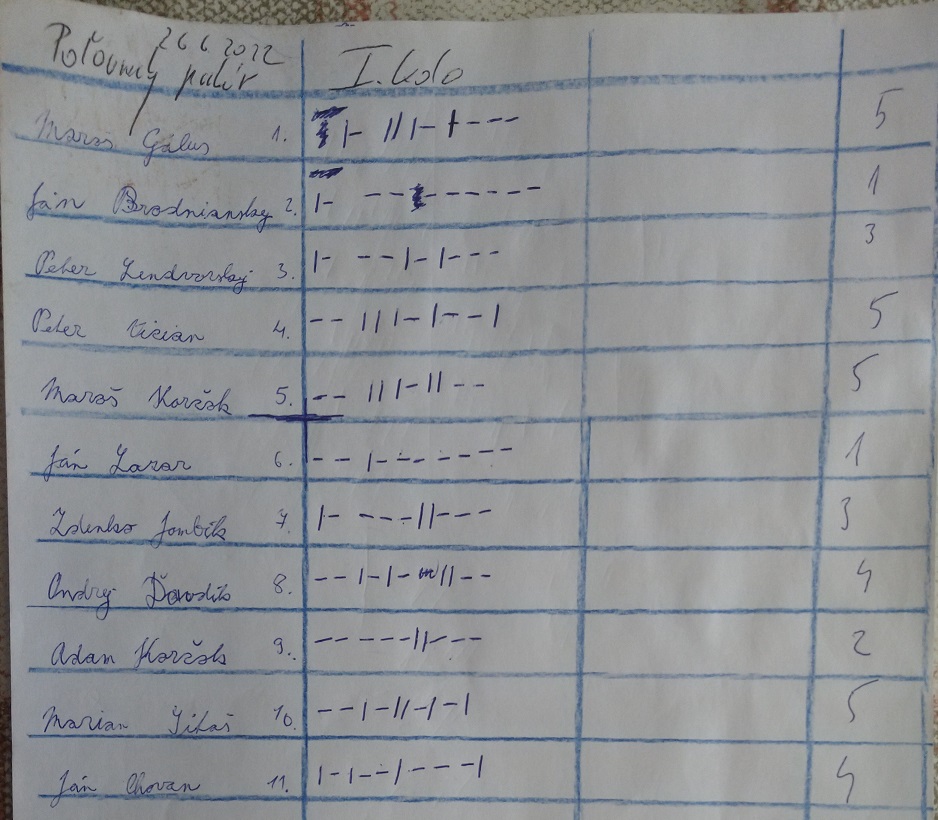 26 6 2022
Poľovnícky pohár I. kolo
Maroš Gálus 1. |- || |- | - - - 5
Ján Brodniansky 2. |- - - - - - - - 1
Peter Lendvorský 3. |- - - | - | - - - 3
Peter Vician 4. - - | | | - | - - | 5
Maroš Korčok 5. - - | | | - | | - - 5
Ján Lazar 6. - - | - - - - - - - 1
Zdenko Jombík 7. |- - - - | | - - - 3
Andrej 8. - - | - | - | | - - 4
Adam Korčok 9. - - - - - | | - - - 2
Marian 10. - - | - | | - | - | 5
Ján Chovan 11. | - | - - | - - - | 4